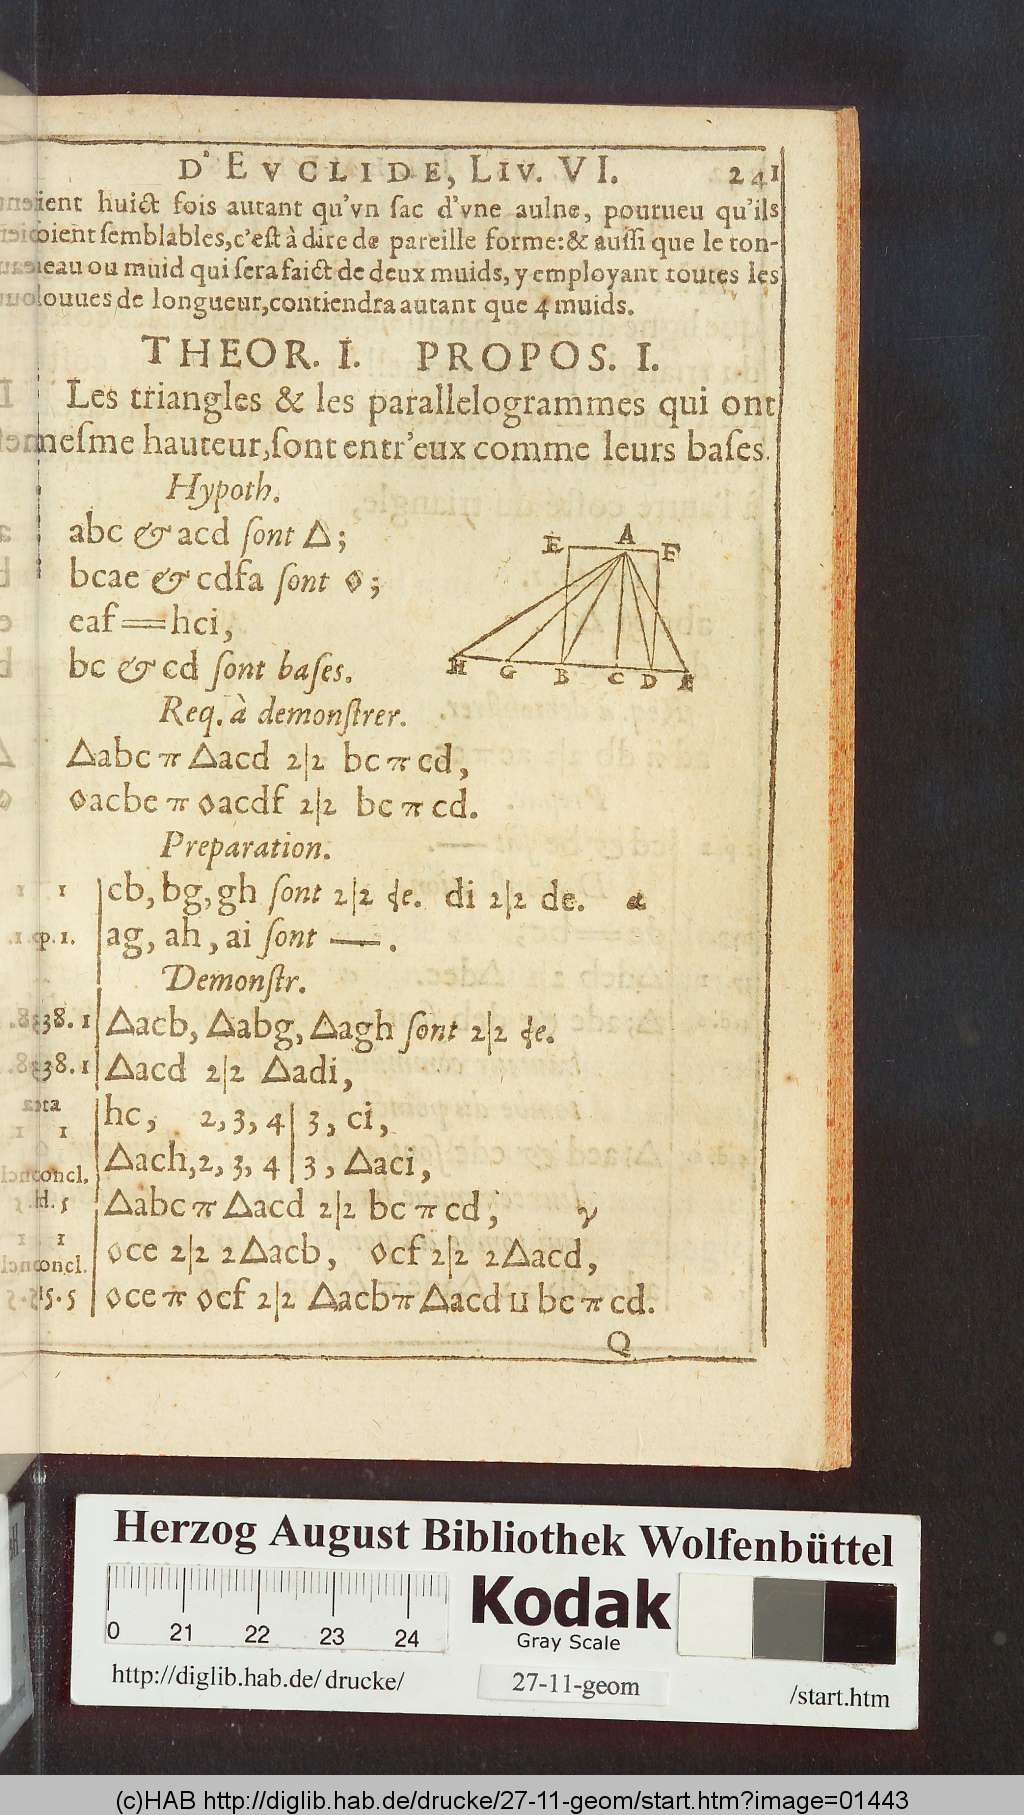 D' EVCLIDE, LIV. VI. 241
ient huict fois autant qu'vn sac d'vne aulne, pourueu qu'ils
oient semblables, c'est à dire de pareille forme: & aussi que le ton-
eau ou muid qui sera faict de deux muids, y employant toutes les
ouues de longueur, contiendra autant que 4 muids.
THEOR. I. PROPOS. I.
Les triangles & les parallelogrammes qui ont
mesme hauteur, sont entr'eux comme leurs bases.
Hypoth.
abc & acd sont △;
bcae & cdfa sont ◊;
eaf == hci,
bc & cd sont bases.
E A F
H G B C D
Req. à demonstrer.
△abc π △acd 2|2 bc π cd,
◊acbe π ◊acdf 2|2 bc π cd.
Preparation.
1 cb, bg, gh sont 2|2 de. di 2|2 de. α
p. 1. ag, ah, ai sont —.
Demonstr.
38. 1 △acb, △abg, △agh sont 2|2 de.
38. 1 △acd 2|2 △adi,
1 hc, 2, 3, 4 | 3, ci,
concl. △ach, 2, 3, 4 | 3, △aci,
d. 5 △abc π △acd 2|2 bc π cd; γ
1 ◊ce 2|2 2△acb, ◊cf 2|2 2△acd,
concl.
15. 5 ◊ce π ◊cf 2|2 △acb π △acd u bc π cd.
Q
Herzog August Bibliothek Wolfenbüttel
0 21 22 23 24
Kodak
Gray Scale
http://diglib.hab.de/drucke/ 27-11-geom /start.htm
(c)HAB http://diglib.hab.de/drucke/27-11-geom/start.htm?image=01443